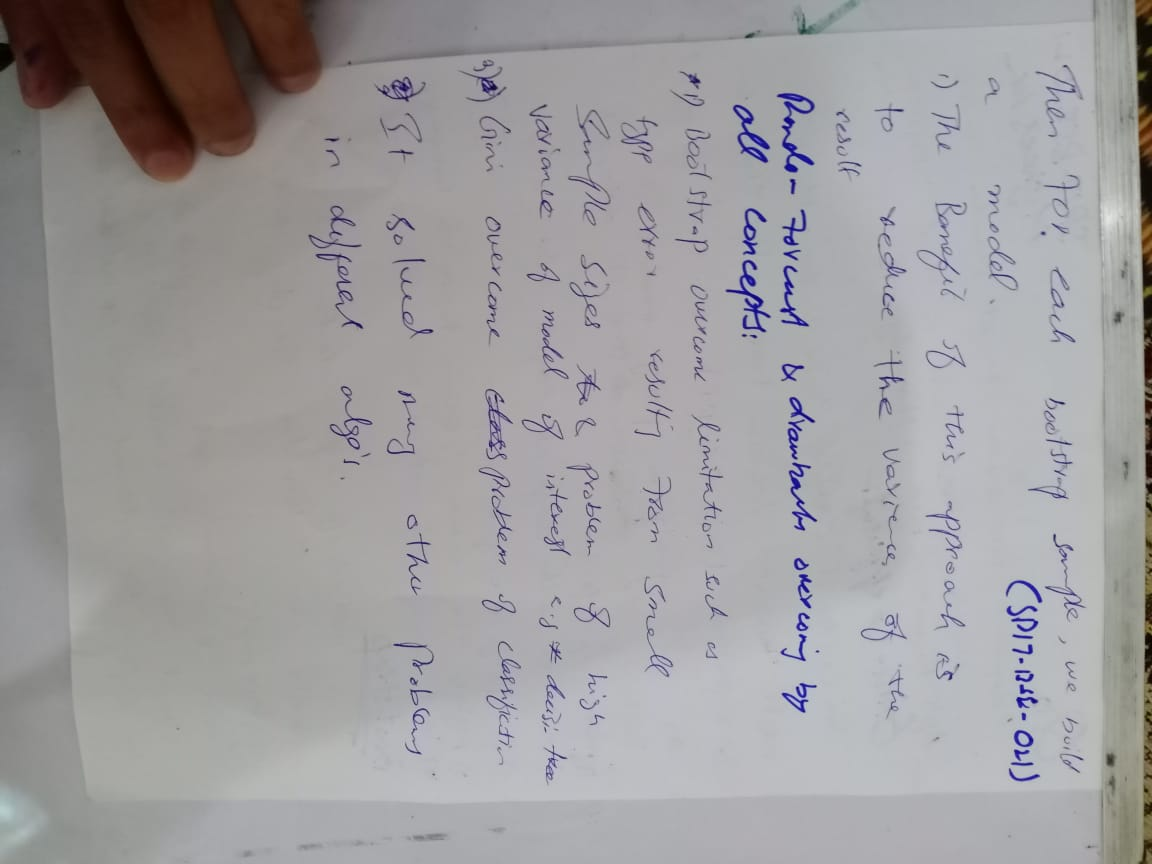 Then For each bootstrap sample, we build
a model. (SP17-BSE-021)
1) The Benefit of this approach is
to reduce the varience of the
result
Rando- Forcust & drawbacks overcomig by
all concepts:
1) Bootstrap overcome limitation such as
type error resultig from small
Sample sizes & problem of high
variance of model of interest e.g decisi tree
2) Gini overcome problem of classifiction
3) It solved may other problems
in different algo's.